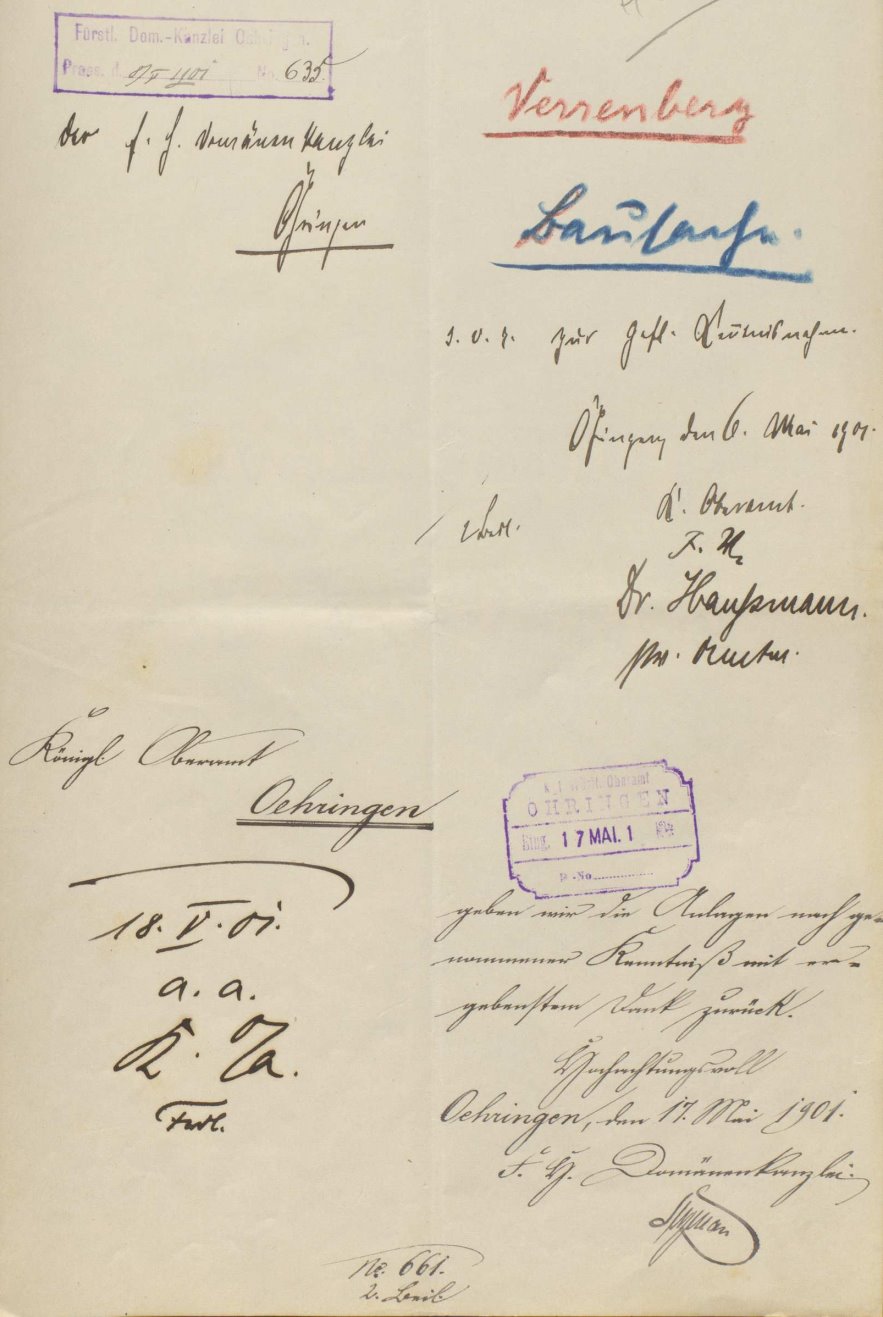 Fürstl. Dom.-Kanzlei Oehringen.
Praes. d. No. 635.
Verrenberg
der f. H. Domänenkanzlei
Öhringen
Bausache.
z. gefl. Kenntnisnahme.
Öhringen den 6. Mai 1901.
K. Oberamt.
Dr. Haußmann.
Königl. Oberamt
Oehringen
Kgl. Württ. Oberamt
ÖHRINGEN
Eing. 17 MAI. 1
No.
18. V. 01.
a. a.
geben wir die Anlagen nach ge-
nommener Kenntniß mit er-
gebenstem Dank zurück.
Hochachtungsvoll
Oehringen, den 17. Mai 1901.
F. H. Domänenkanzlei.
No. 661.
2. Beil.